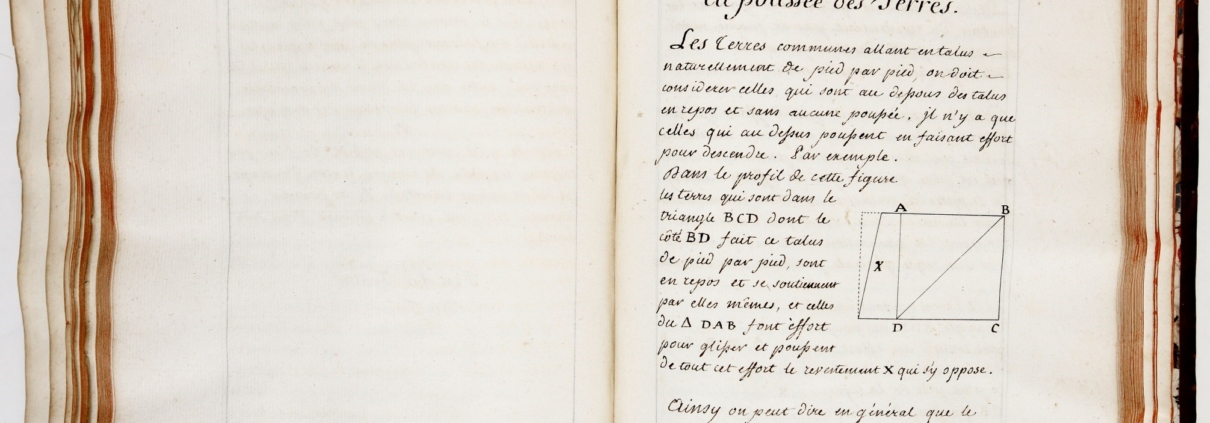 de poussée des Terres.
Les Terres communes allant en talus
naturellement de pied par pied, on doit
considerer celles qui sont au dessous des talus
en repos et sans aucune poussée. jl n'y a que
celles qui au dessus poussent en faisant effort
pour descendre. Par exemple.
Dans le profil de cette figure
les terres qui sont dans le
triangle BCD dont le
côté BD fait ce talus
de pied par pied, sont
en repos et se soutiennent
par elles mêmes, et celles
du Δ DAB font effort
pour glisser et poussent
de tout cet effort le revestement X qui s'y oppose.
A B
X
D C
Ainsy on peut dire en général que le